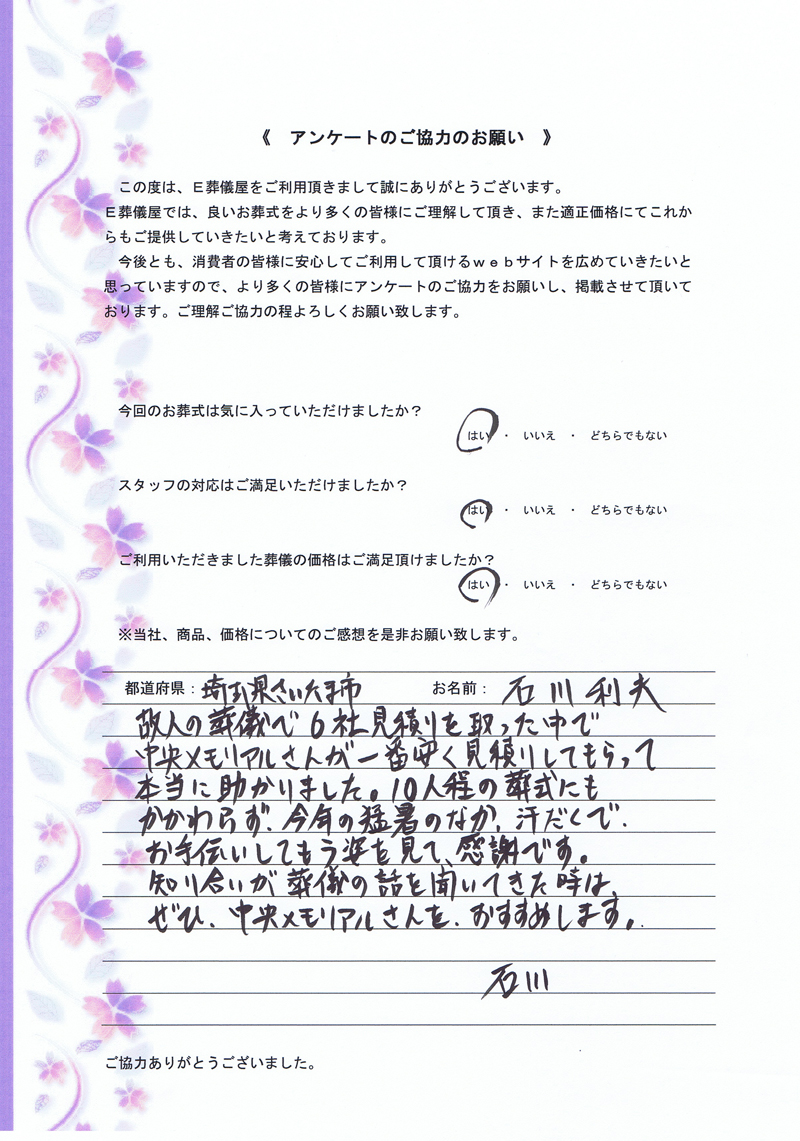 《　アンケートのご協力のお願い　》
この度は、Ｅ葬儀屋をご利用頂きまして誠にありがとうございます。
Ｅ葬儀屋では、良いお葬式をより多くの皆様にご理解して頂き、また適正価格にてこれか
らもご提供していきたいと考えております。
今後とも、消費者の皆様に安心してご利用して頂けるｗｅｂサイトを広めていきたいと
思っていますので、より多くの皆様にアンケートのご協力をお願いし、掲載させて頂いて
おります。ご理解ご協力の程よろしくお願い致します。
今回のお葬式は気に入っていただけましたか？
はい　・　いいえ　・　どちらでもない
スタッフの対応はご満足いただけましたか？
はい　・　いいえ　・　どちらでもない
ご利用いただきました葬儀の価格はご満足頂けましたか？
はい　・　いいえ　・　どちらでもない
※当社、商品、価格についてのご感想を是非お願い致します。
都道府県：埼玉県さいたま市　お名前：石川利夫
故人の葬儀で6社見積りを取った中で
中央メモリアルさんが一番安く見積りしてもらって
本当に助かりました。10人程の葬式にも
かかわらず、今年の猛暑のなか、汗だくで、
お手伝いしてもう姿を見て、感謝です。
知り合いが葬儀の話を聞いてきた時は、
ぜひ、中央メモリアルさんを、おすすめします。
石川
ご協力ありがとうございました。